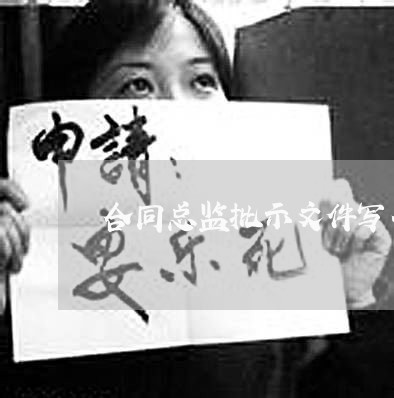 申請：
合同总监批示文件写
安乐死